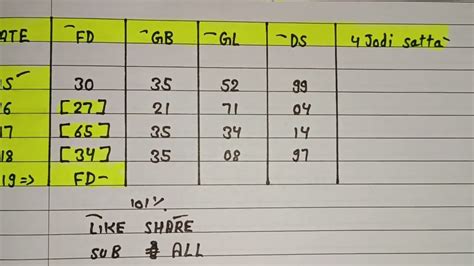 ATE FD GB GL DS 4 Jodi satta
5 30 35 52 99
6 [27] 21 71 04
17 [65] 35 34 14
18 [34] 35 08 97
19=> FD-
101%
LIKE SHARE
SUB ALL